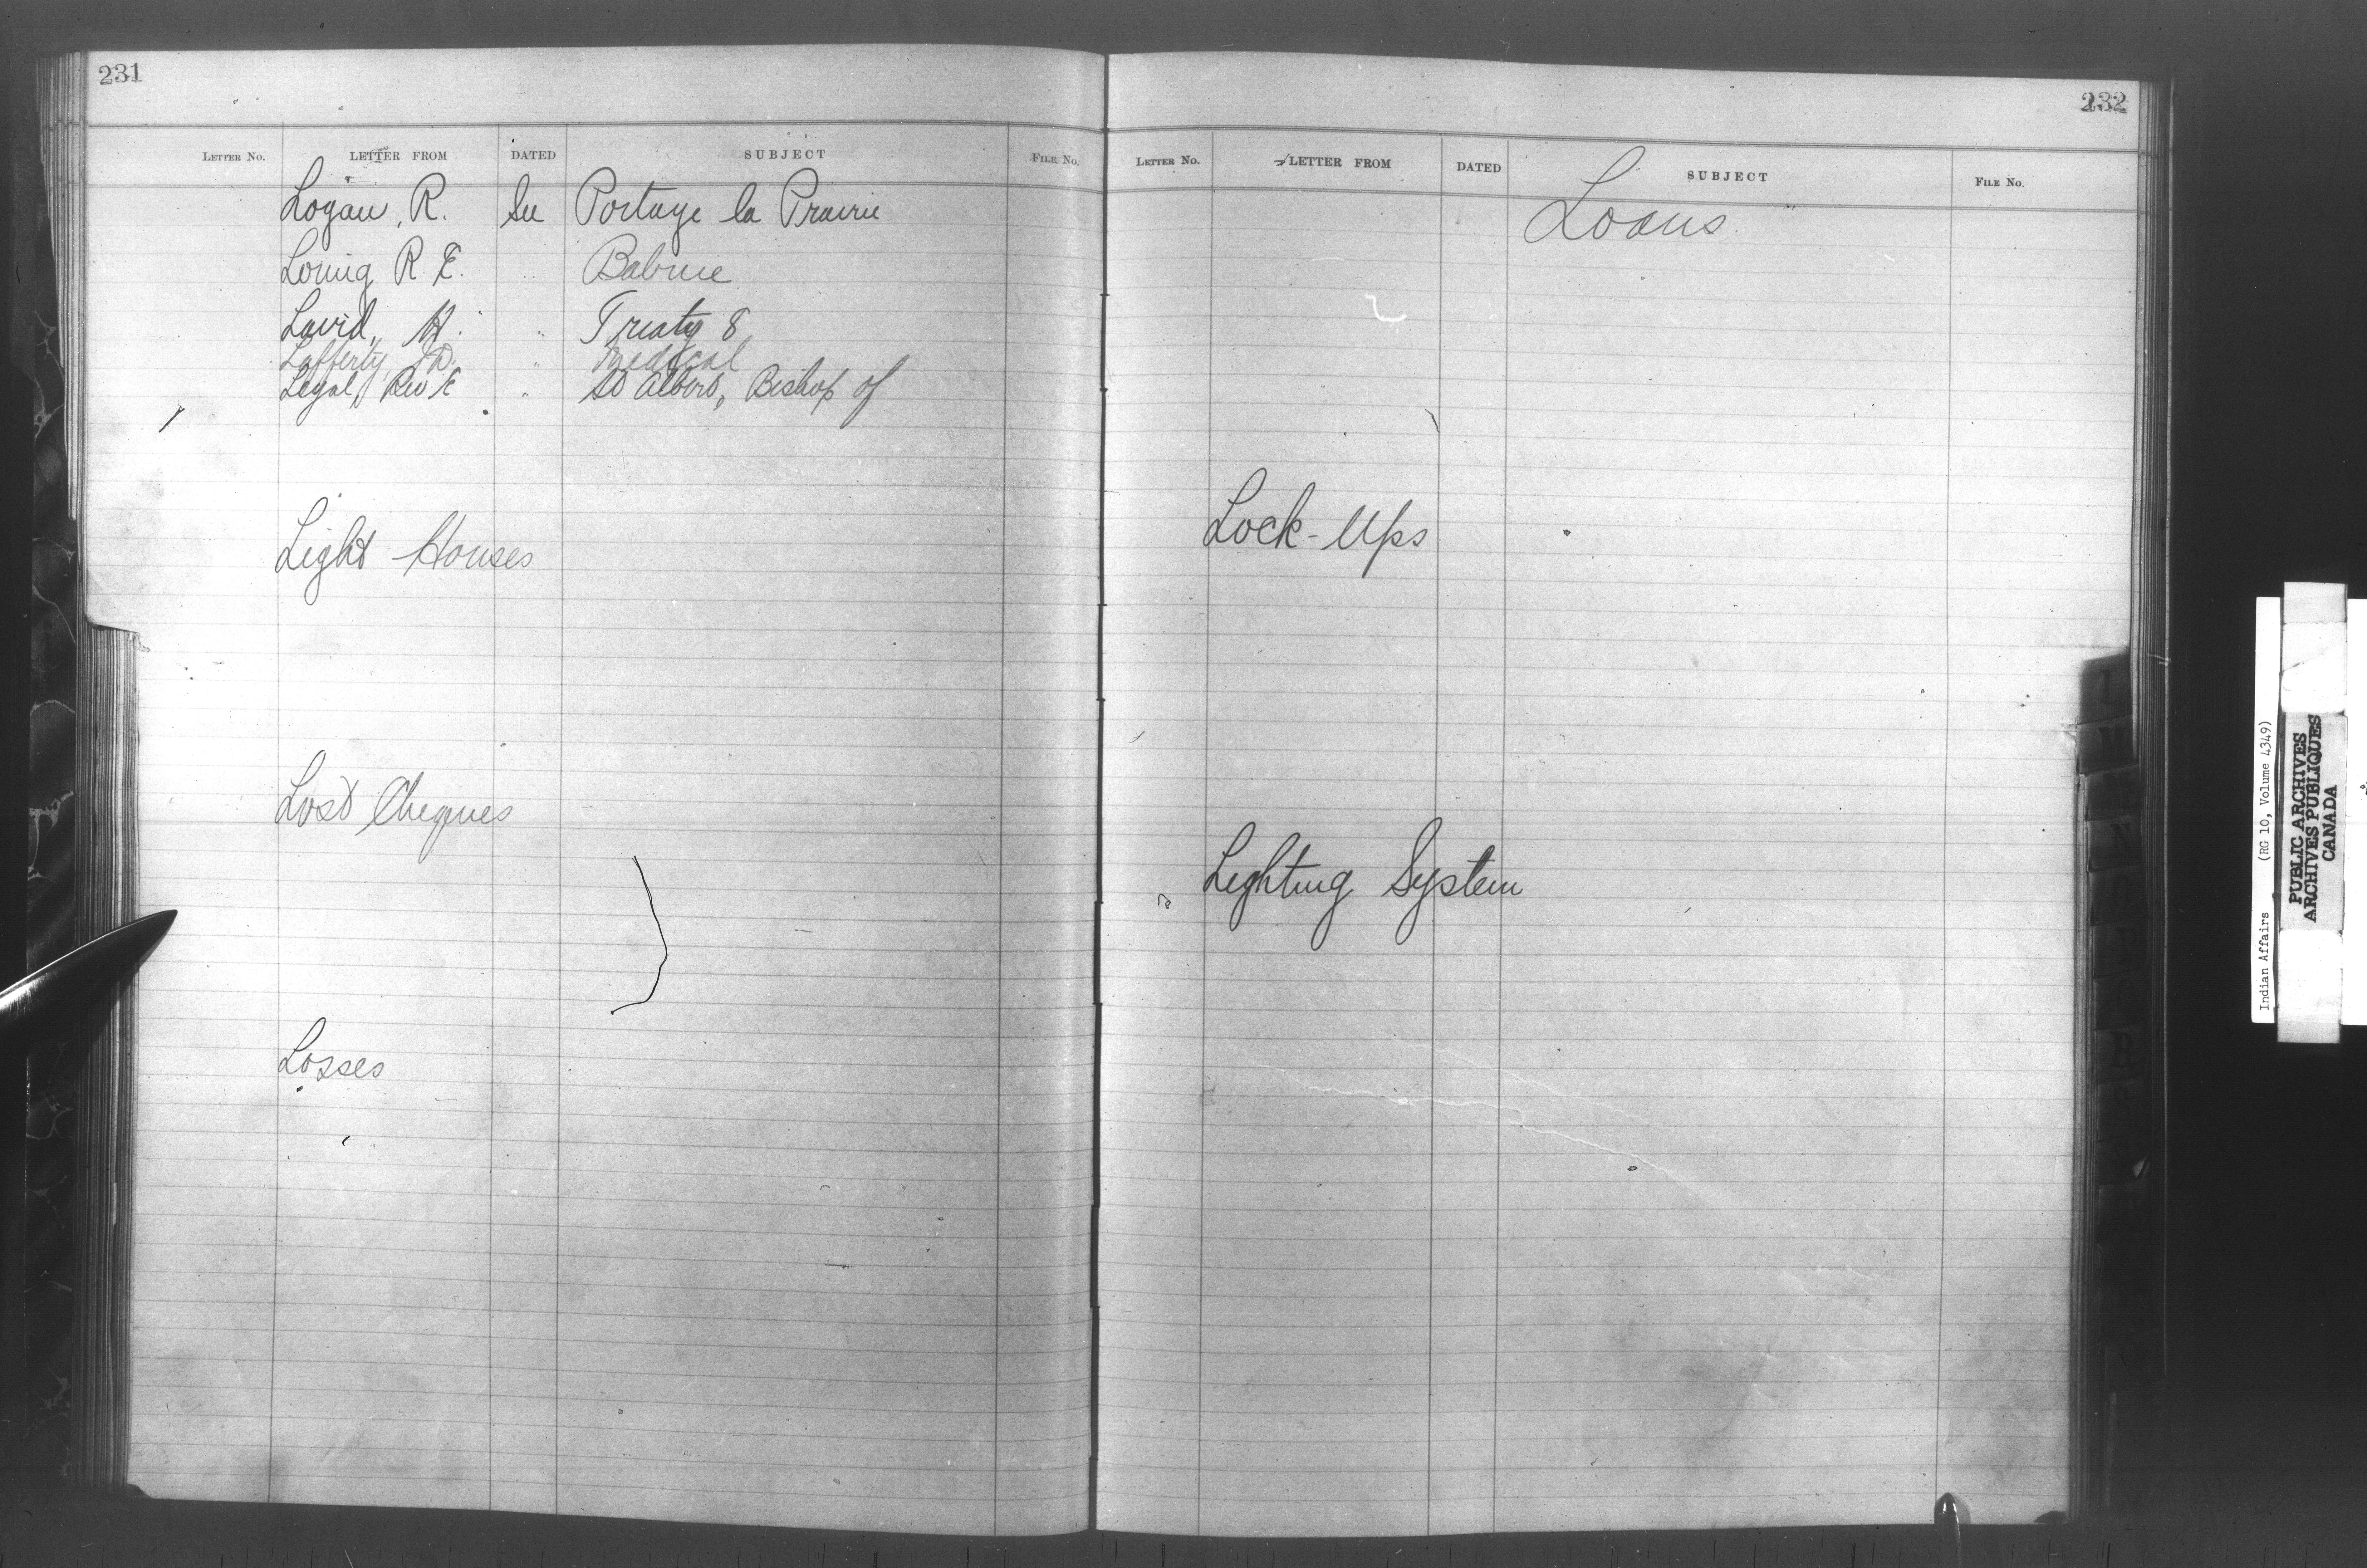 231
LETTER NO. LETTER FROM DATED SUBJECT FILE No.
Logan, R. See Portage la Prairie
Loring R. E. " Babine
Laird, H. " Treaty 8
Lafferty JD. " Medical
Legal, Rev E " St Albert, Bishop of
Light Houses
Lost Cheques
Losses
232
LETTER NO. LETTER FROM DATED SUBJECT FILE No.
Loans
Lock-Ups
Lighting System
Indian Affairs (RG 10, Volume 4349)
PUBLIC ARCHIVES
ARCHIVES PUBLIQUES
CANADA